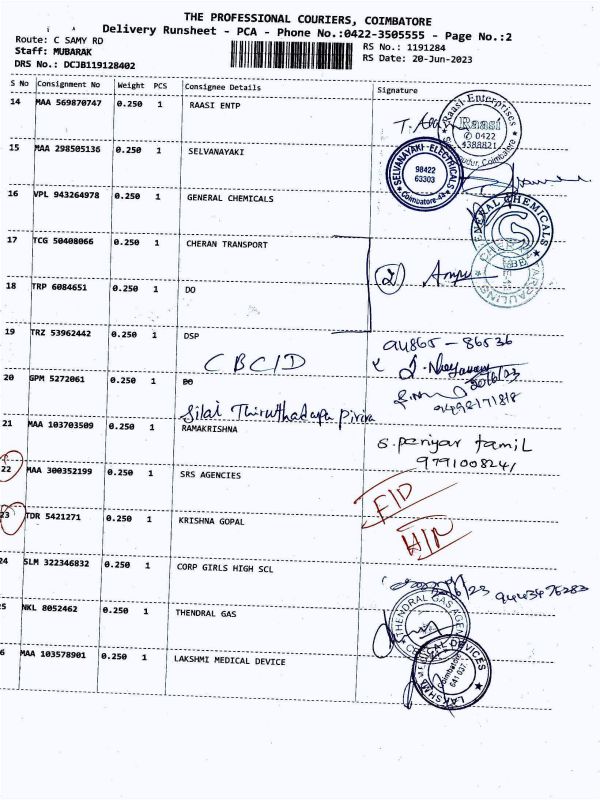 THE PROFESSIONAL COURIERS, COIMBATORE
Delivery Runsheet - PCA - Phone No.:0422-3505555 - Page No.:2
Route: C SAMY RD
Staff: MUBARAK
DRS No.: DCJB119128402
RS No.: 1191284
RS Date: 20-Jun-2023
S No Consignment No Weight PCS Consignee Details Signature
14 MAA 569870747 0.250 1 RAASI ENTP
Raasi Enterprises
Raasi
0422
4388821
Coimbatore
15 MAA 298505136 0.250 1 SELVANAYAKI
SELVANAYAKI ELECTRICALS
98422
63303
Coimbatore-44
16 VPL 943264978 0.250 1 GENERAL CHEMICALS
GENERAL CHEMICALS
17 TCG 50408066 0.250 1 CHERAN TRANSPORT
2
TARPAULINS
18 TRP 6084651 0.250 1 DO
19 TRZ 53962442 0.250 1 DSP
94865 - 86536
CBCID
20 GPM 5272061 0.250 1 DO
20/6/23
9498171818
Silai Thiruthadupu pirivu
21 MAA 103703509 0.250 1 RAMAKRISHNA
S. periyar tamil
9791008241
22 MAA 300352199 0.250 1 SRS AGENCIES
FID
23 TDR 5421271 0.250 1 KRISHNA GOPAL
HIN
24 SLM 322346832 0.250 1 CORP GIRLS HIGH SCL
9443475283
25 NKL 8052462 0.250 1 THENDRAL GAS
THENDRAL GAS AGENCY
26 MAA 103578901 0.250 1 LAKSHMI MEDICAL DEVICE
LAKSHMI MEDICAL DEVICES
Coimbatore
641 037